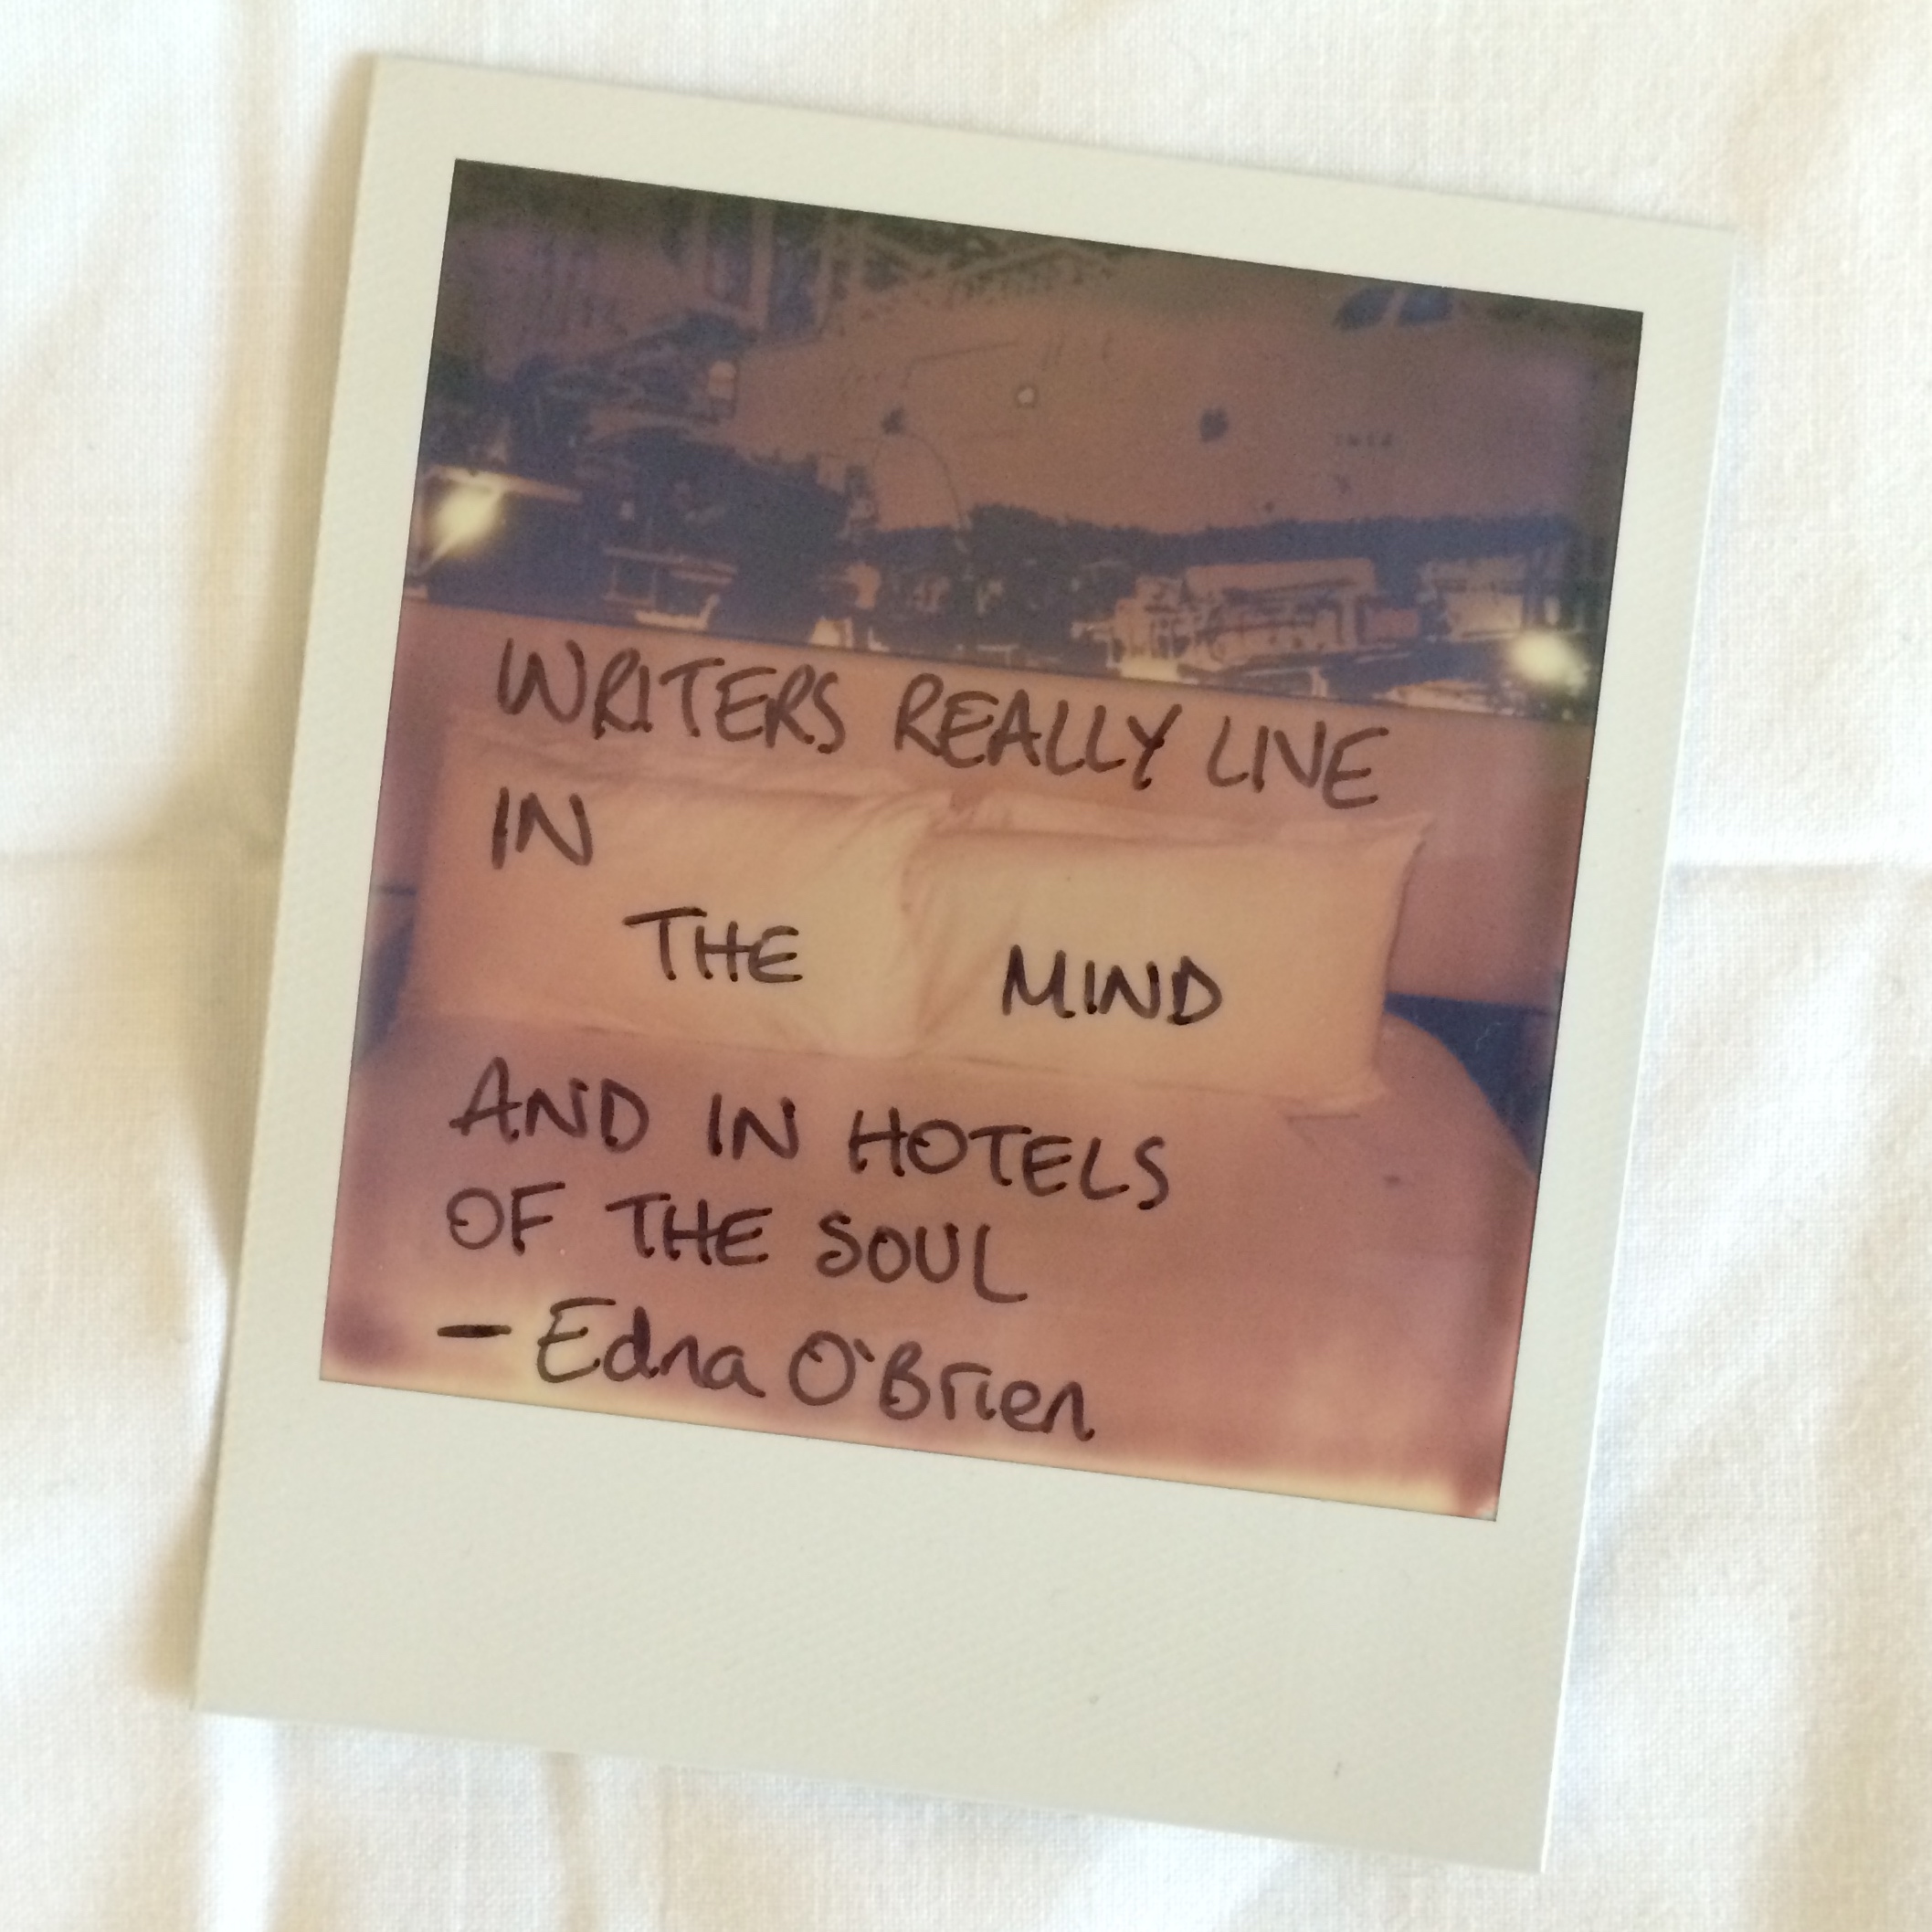 WRITERS REALLY LIVE
IN
THE MIND
AND IN HOTELS
OF THE SOUL
— Edna O'Brien